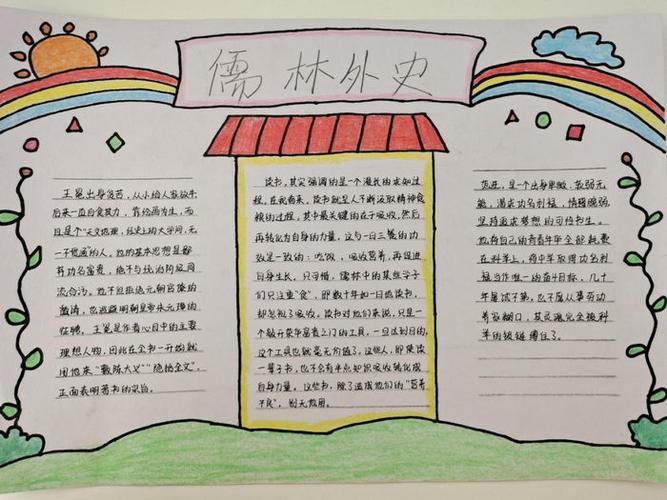 儒林外史
王冕出身贫苦，从小给人家放牛
后来一直自食其力，靠绘画为生，而
且是个“天文地理，经史上的大学问，无
一不贯通”的人。他的基本思想是鄙
弃功名富贵，绝不与统治阶级同
流合污。他不但拒绝元朝官僚的
邀请，也逃避明朝皇帝朱元璋的
征聘，王冕是作者心目中的主要
理想人物，因此在全书一开始就
用他来“敷陈大义”“隐括全文”，
正面表明著书的宗旨。
读书，其实强调的是一个漫长的求知过
程，在我看来，读书就是人不断汲取精神食
粮的过程，其中最关键的在于吸收，然后
再转化为自身的力量，这与一日三餐的功
效是一致的：吃饭，吸收营养，再促进
自身生长，只可惜，儒林中的某些学子
们只注重“食”，即数十年如一日地读书，
却忽视了吸收。读书对他们来说，只是一
个敲开荣华富贵之门的工具，一旦达到目的，
这个工具也就毫无价值了，这些人，即使读
一辈子书，也不会有半点知识吸收转化成
自身力量。这些书，除了造成他们的“营养
不良”，别无他用。
范进，是一个出身卑微，故弱无
能，渴求功名利禄，情感脆弱，
坚持追求梦想的可怜书生。
他将自己的青春年华全部耗费
在科举上，将中举取得功名利
禄当作唯一的奋斗目标，几十
年屡试不第，也不愿从事劳动
养家糊口，其灵魂完全被科
举的枷锁缚住了。